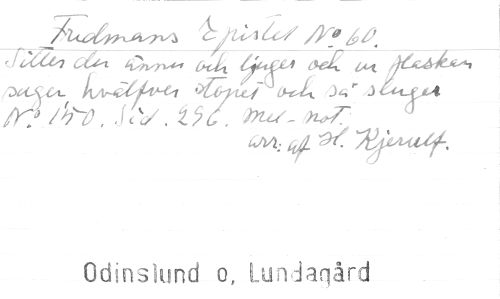 Fredmans Epistel No 60.
Sitter du ännu och ljuger och ur flaskan
suger hvälfver stopet och så sluger
No 150. Sid. 296. mel-not.
arr: af H. Kjerulf.
Odinslund o, Lundagård